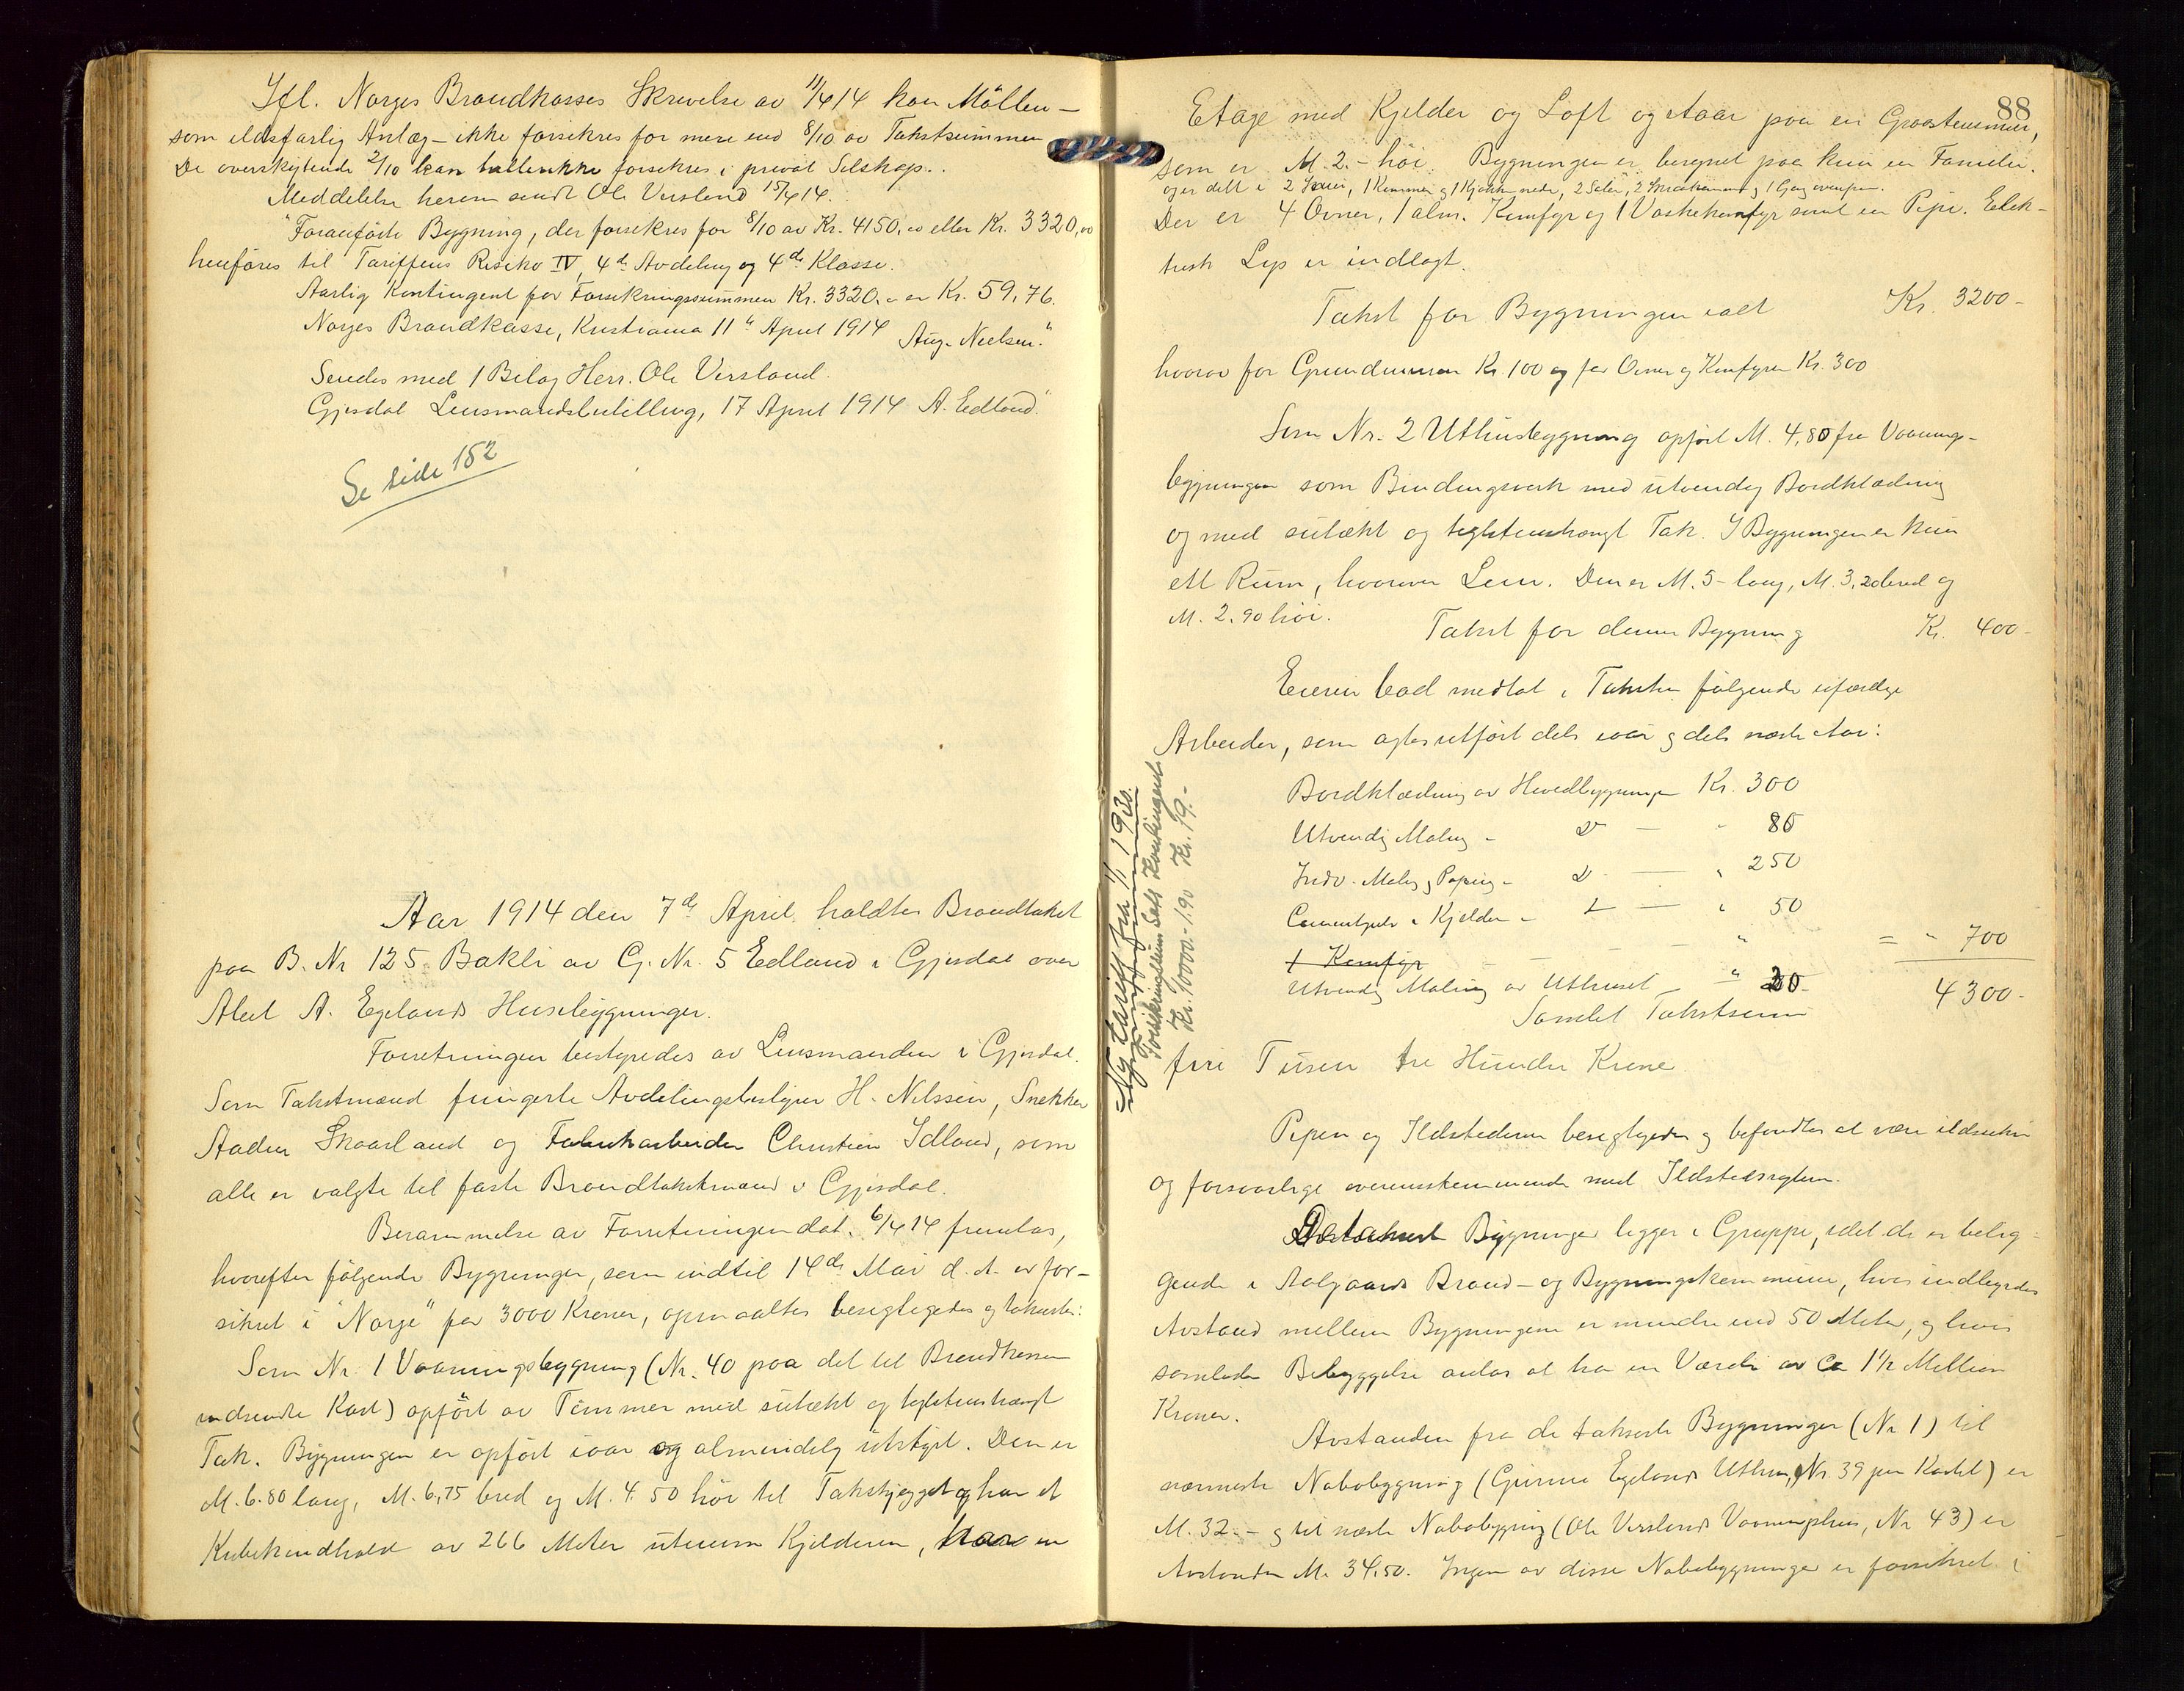 Ifl. Norges Brandkasses Skrivelse av 11/4 14 kan Möllen –
som ildsfarlig Anlæg – ikke forsikres for mere end 8/10 av Takstsummen
De overskytende 2/10 kan heller ikke forsikres i privat Selskap.
Meddelelse herom sendt Ole Versland 15/4 14.
"Foranförte Bygning, der forsikres for 8/10 av Kr. 4150,00 eller Kr. 3320,00
henföres til Tariffens Risiko IV, 4de Avdeling og 4de Klasse.
Aarlig Kontingent for Forsikringssummen Kr. 3320.- er Kr. 59,76.
Norges Brandkasse, Kristiania 11te April 1914 Aug. Nielsen."
Sendes med 1 Bilag Herr. Ole Versland.
Gjesdal Lensmandsbestilling, 17 April 1914 A. Edland."
Se side 152
Aar 1914 den 7de April holdtes Brandtakst
paa B. Nr 125 Bakli av G. Nr. 5 Edland i Gjesdal over
Abel A. Egelands Husebygninger.
Forretningen bestyredes av Lensmanden i Gjesdal.
Som Takstmænd fungerte Avdelingsbestyrer H. Nilssen, Snekker
Aadne Skaarland og Fabrikarbeider Christian Idland, som
alle er valgte til faste Brandtakstmænd i Gjesdal.
Berammelse av Forretningen dat. 6/4 14 fremlas,
hvorefter følgende Bygninger, som indtil 14de Mai d. A. er for-
sikret i "Norge" for 3000 Kroner, opmaaltes besigtigedes og takseredes:
Som Nr. 1 Vaaningsbygning (Nr. 40 paa det til Brandkassen
indsendte Kart) opfört av Tömmer med sutækt og teglstenshængt
Tak. Bygningen er opfört iaar og almindelig utstyrt. Den er
M. 6.80 lang, M. 6,75 bred og M. 4.50 höi til Takskjægget og har et
Kubikindhold av 266 Meter utenom Kjelderen, har en
88
Etage med Kjelder og Loft og staar paa en Graastensmur,
som er M. 2.- höi. Bygningen er beregnet paa kun en Familie.
og er delt i 2 Stuer, 1 Kammer og 1 Kjøkken nede, 2 Saler, 2 Smaakammer og 1 Gang ovenpaa.
Der er 4 Ovner, 1 alm. Komfyr og 1 Vaskekomfyr samt en Pipe. Elek-
trisk Lys er indlagt.
Takst for Bygningen ialt Kr. 3200-
hvorav for Grundmuren Kr. 100 og for Ovner og Komfyrer Kr. 300
Som Nr. 2 Uthusbygning opfört M. 4,80 fra Vaanings-
bygningen som Bindingsverk med utvendig Bordklædning
og med sutækt og teglstenshængt Tak. I Bygningen er kun
ett Rum, hvorover Lem. Den er M. 5- lang, M. 3,20 bred og
M. 2.90 höi.
Takst for denne Bygning Kr. 400-
Eieren bad medtat i Taksten følgende uferdige
Arbeider, som agtes utfört dels iaar og dels næste Aar:
Bordklædning av Hovedbygningen Kr. 300
Utvendig Maling - do - " 80
Indv. Maling & Papring - do - " 250
Cementgulv i Kjelder - " 50
1 Komfyr - - - " = " 700
Utvendig Maling av Uthuset - " 20-
Samlet Takstsum 4300-
fire Tusen tre Hundre Krone
Pipen og Ildstederne besigtigedes og befandtes at være ildsikre
og forsvarlige overensstemmende med Ildstedsreglem.
De takserte Bygninger ligger i Gruppe, idet de er belig-
gende i Aalgaards Brand- og Bygningskommune, hvis indbyrdes
Avstand mellem Bygningerne er mindre end 50 Meter, og hvis
samlede Bebyggelse antas at ha en Værdi av ca 1½ Million
Kroner.
Avstanden fra de takserte Bygninger (Nr 1) til
nærmeste Nabobygning (Gunnar Egelands Uthus, Nr. 39 paa Kartet) er
M. 32.- og til næste Nabobygning (Ole Verslands Vaaningshus, Nr 43) er
Avstanden M. 34,50. Ingen av disse Nabobygninger er forsikret i
Ny tariff fra 1/1 1920.
Forsikringssum Sats Kontingent
Kr. 10000.- 1.90 Kr. 19.-